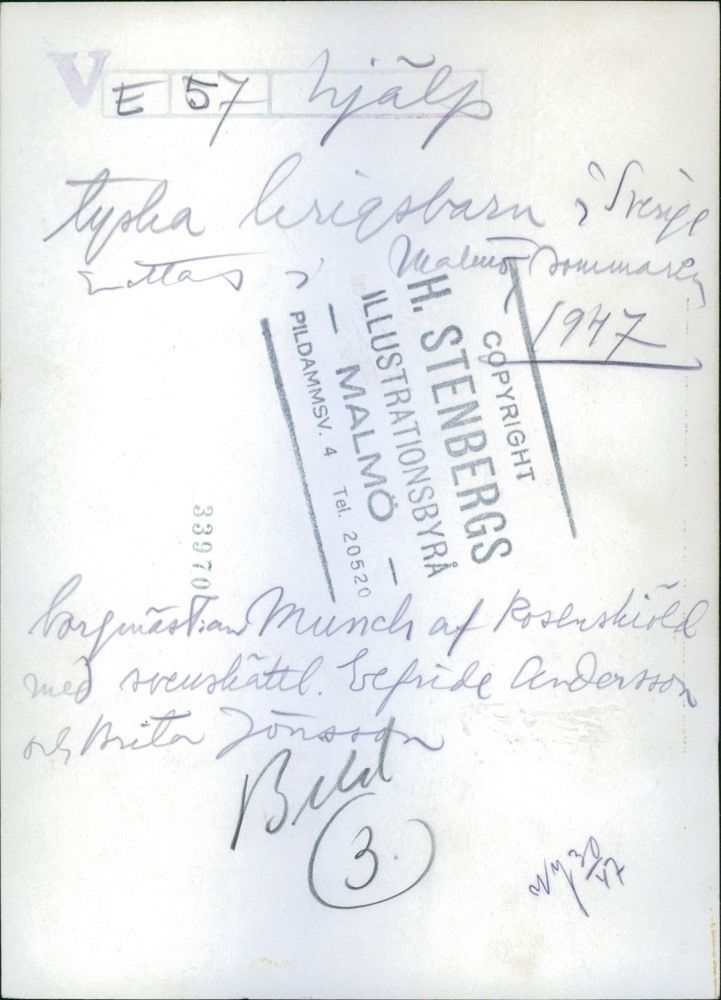 V E 57 hjälp
tyska krigsbarn i Sverige
mottas i Malmö sommaren
1947
COPYRIGHT
H. STENBERGS
ILLUSTRATIONSBYRÅ
— MALMÖ —
PILDAMMSV. 4 Tel. 20520
33970
borgmästare Munch af Rosenschiöld
med svenskättl. Elfride Andersson
och Brita Jönsson
Bild
3.
30/47